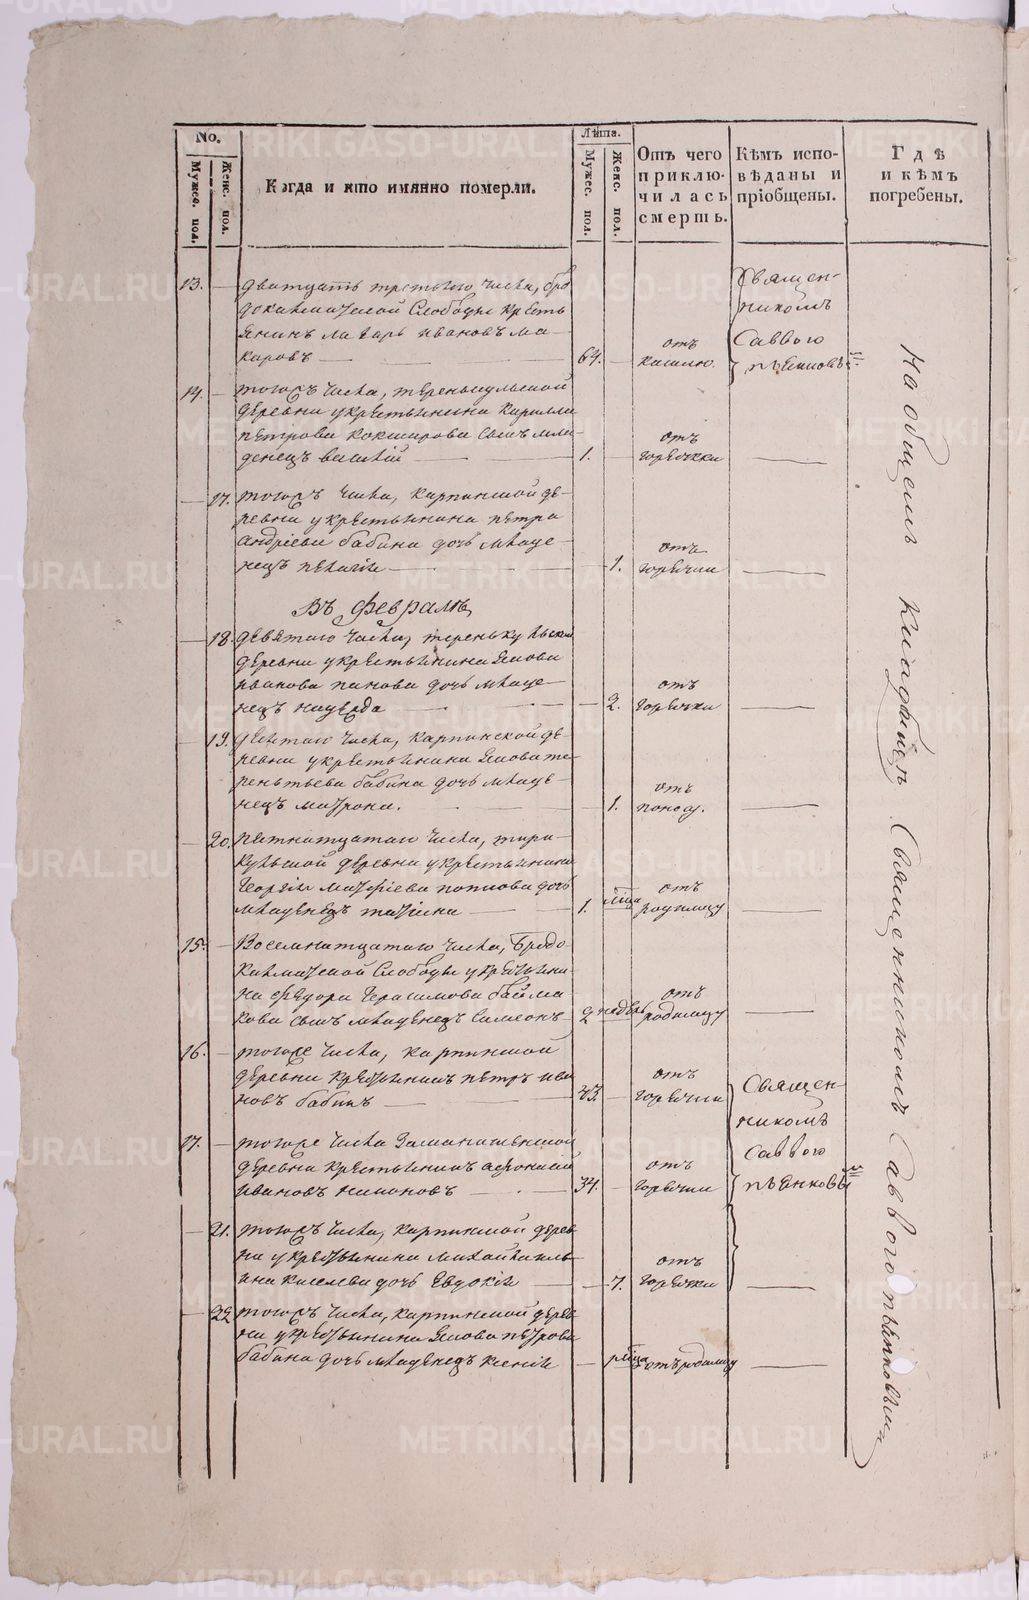 No.
Мужес. пол.
Женс. пол.
Когда и кто имянно померли.
Лѣта.
Мужес. пол.
Женс. пол.
Отъ чего
приклю-
чилась
смерть.
Кѣмъ испо-
вѣданы и
пріобщены.
Гдѣ
и кѣмъ
погребены.
13. — дватцать третьяго числа, бро
докалмацкой Слободы кресть
янинъ Лазарь Ивановъ Ма-
каровъ — 64. — отъ кашлю.
Священ-
никомъ
Саввою
Пѣнковымъ
14. — тогожъ числа, теренькульской
деревни у крестьянина Кирилла
Петрова Кокшарова сынъ мла-
денецъ Василій — 1. — отъ горячки —
— 17. тогожъ числа, Карпинской де-
ревни у крестьянина Петра
Андріева Бабина дочь младе-
нецъ Пелагія — 1. отъ горячки —
Въ Февралѣ
— 18. девятаго числа, теренькульской
деревни у крестьянина Якова
Иванова Панова дочь младе-
нецъ Надежда — 2. отъ горячки —
— 19. девятаго числа, Карпинской де-
ревни у крестьянина Якова Те-
рентьева Бабина дочь младе-
нецъ Матрона. — 1. отъ поносу. —
— 20. пятнатцатаго числа, тирин-
кульской деревни у крестьянина
Георгія Матфіева Попкова дочь
младенецъ Татіана — 1. мца отъ родимцу —
15. — Восемнатцатаго числа, Бродо-
калмацкой Слободы у крестьяни-
на Федора Герасимова Байма-
кова сынъ младенецъ Симеонъ — 2 недѣль отъ родимцу —
16. — тогоже числа, карпинской
деревни крестьянинъ Петръ Ива
новъ Бабинъ — 43. — отъ горячки
Священ-
никомъ
Саввою
Пѣнковымъ
17. — тогоже числа
деревни крестьянинъ Афонасій
Ивановъ — 34. — отъ горячки
— 21. тогожъ числа, карпинской дерев
ни у крестьянина Михайла Иль-
ина Киселева дочь Евдокія — 7. отъ горячки —
— 22 тогожъ числа, карпинской дерев
ни у крестьянина Якова Петрова
Бабина дочь младенецъ Ксенія — мца отъ родимцу —
На общемъ кладбищѣ Священникомъ Саввою Пѣнковымъ
METRIKI.GASO-URAL.RU